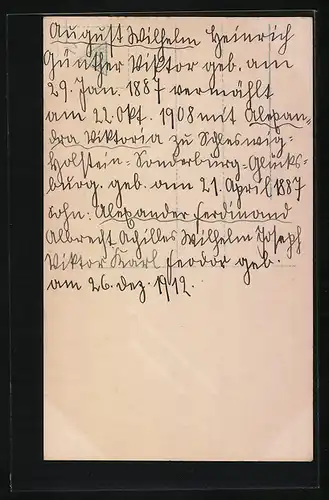 August Wilhelm Heinrich
Günther Viktor geb. am
29. Jan. 1887 vermählt
am 22. Okt. 1908 mit Alexan-
dra Viktoria zu Schleswig-
Holstein-Sonderburg-Glücks-
burg. geb. am 21. April 1887
Sohn: Alexander Ferdinand
Albrecht Achilles Wilhelm Joseph
Viktor Karl Feodor geb.
am 26. Dez. 1912.